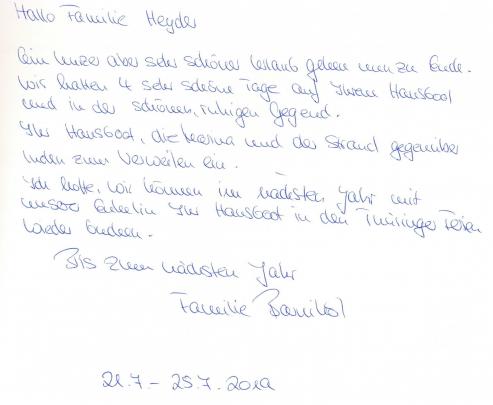 Hallo Familie Heyder
Ein kurzer aber sehr schöner Urlaub gehen nun zu Ende.
Wir hatten 4 sehr schöne Tage auf Ihrem Hausboot
und in der schönen, ruhigen Gegend.
Ihr Hausboot, die Marina und der Strand gegenüber
luden zum Verweilen ein.
Ich hoffe, wir können im nächsten Jahr mit
unserer Enkelin Ihr Hausboot in den Thüringer Ferien
wieder
Bis zum nächsten Jahr
Familie
21.7 - 25.7.2019